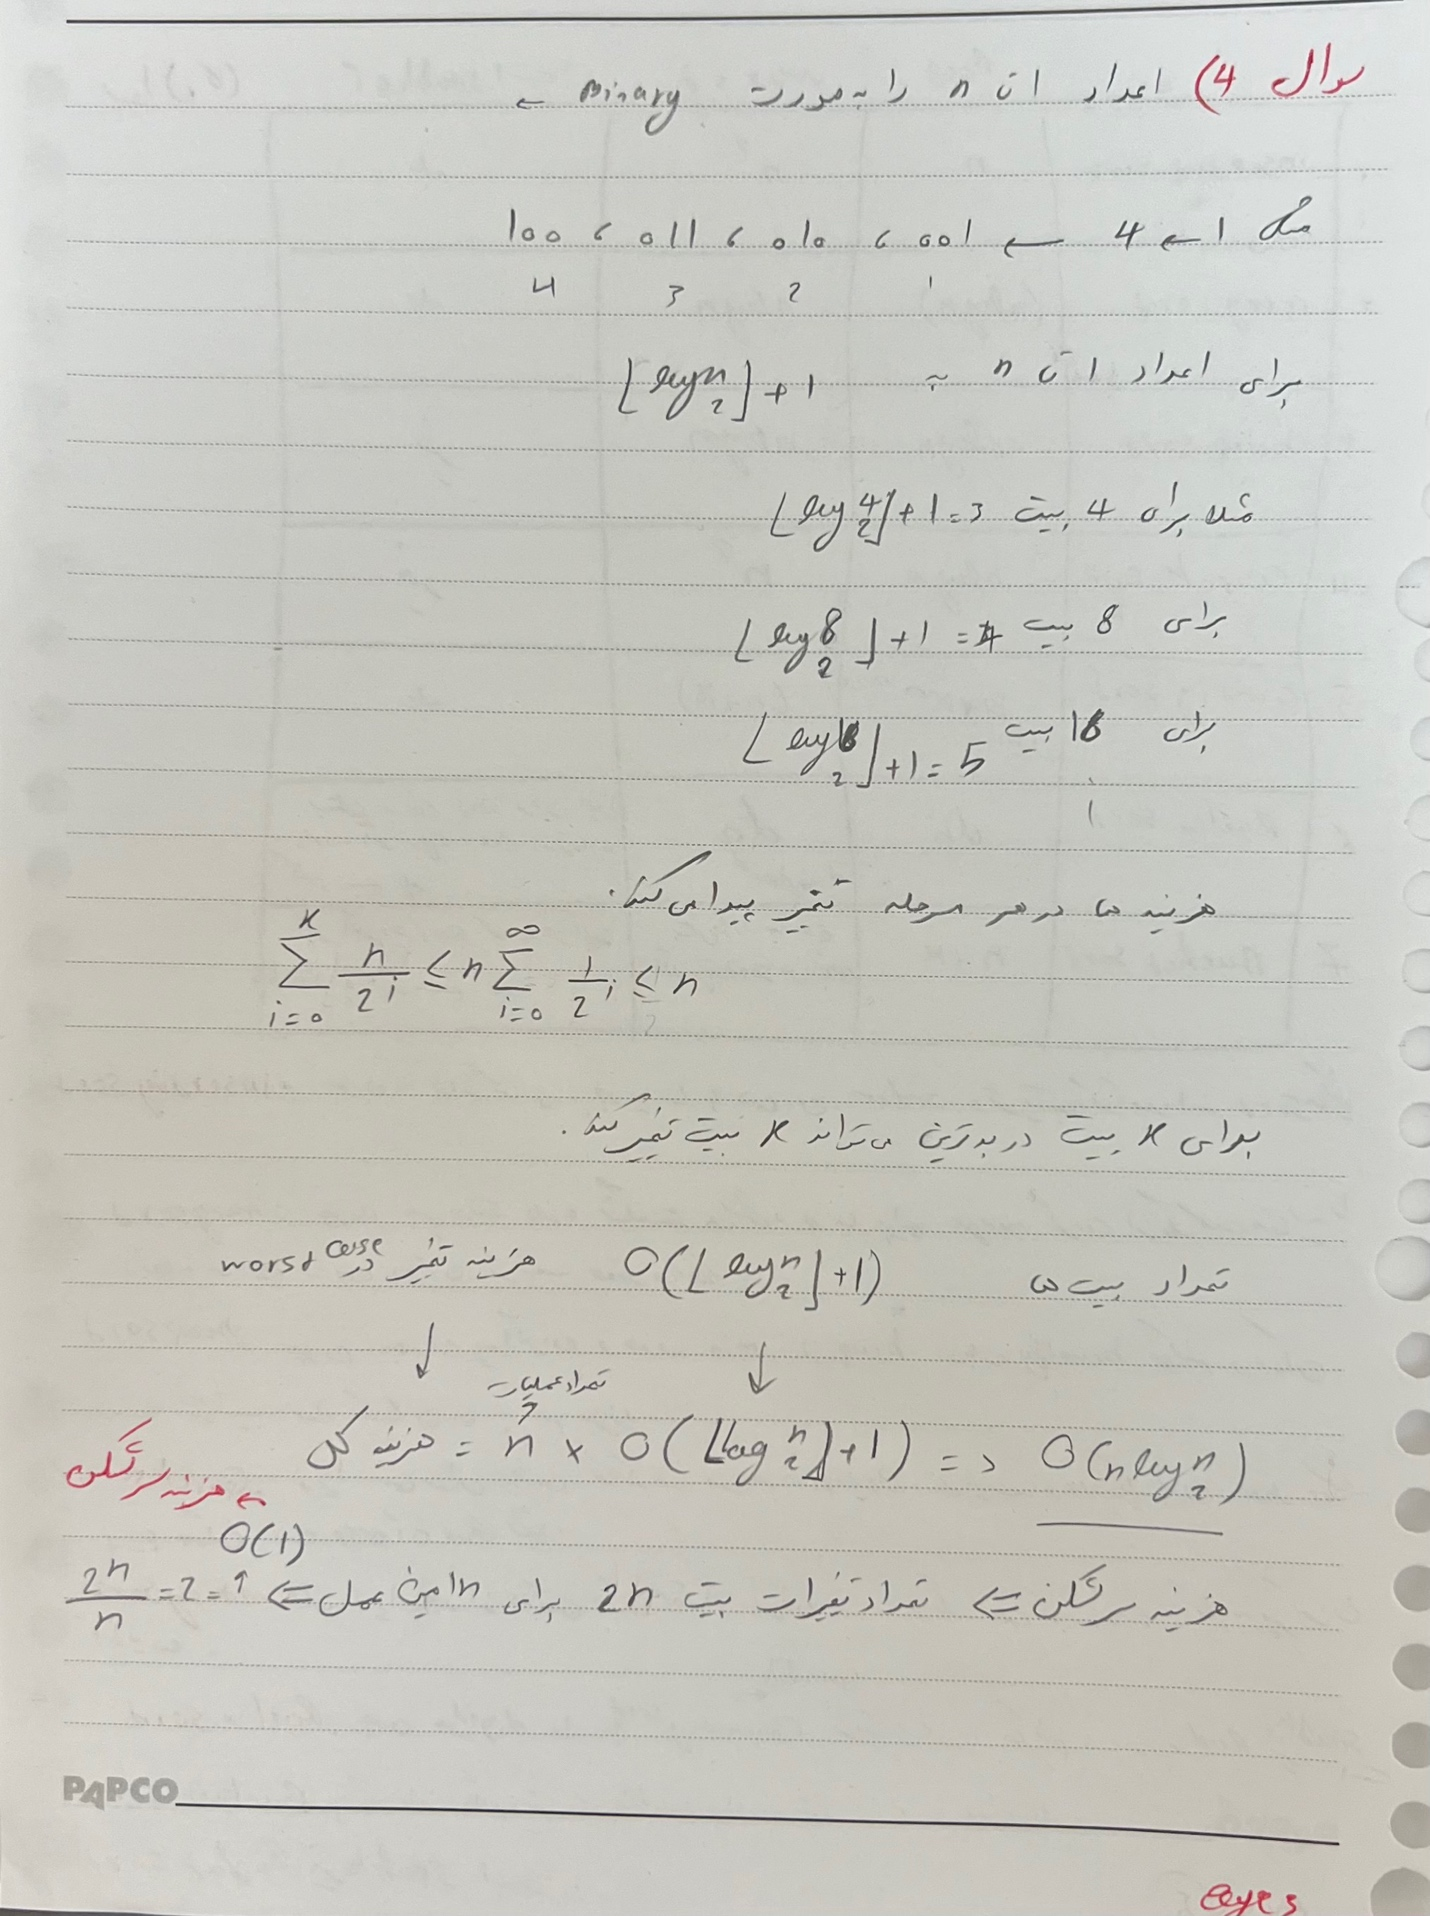 سوال 4) اعداد 1 تا n را به صورت Binary ←
مثلا 1 ← 4 ← 001 ، 010 ، 011 ، 100
1 2 3 4
برای اعداد 1 تا n به ⌊log₂n⌋ + 1
مثلا برای 4 بیت ⌊log₂4⌋ + 1 = 3
برای 8 بیت ⌊log₂8⌋ + 1 = 4
برای 16 بیت ⌊log₂16⌋ + 1 = 5
هزینه ها در هر مرحله تغیر پیدا می کند.
∑_{i=0}^{K} n/2^i ≤ n ∑_{i=0}^{∞} 1/2^i ≤ n
برای K بیت در بدترین می تواند K بیت تغیر کند.
تعداد بیت ها O(⌊log₂n⌋+1) هزینه تغیر در worst case
↓ ↓
تعداد عملیات
هزینه کل = n × O(⌊log₂n⌋+1) => O(n log₂n)
← هزینه سرشکن
O(1)
هزینه سرشکن <= تعداد تغیرات بیت 2n برای n امین عمل <= 2n/n = 2 = ↑
PAPCO